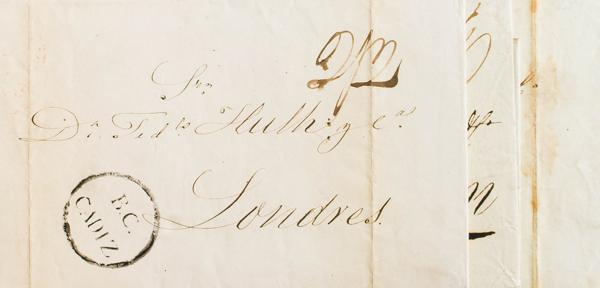 2/2
Sres
Dn Fedco Huth y Ca
Londres.
B.C.
CADIZ